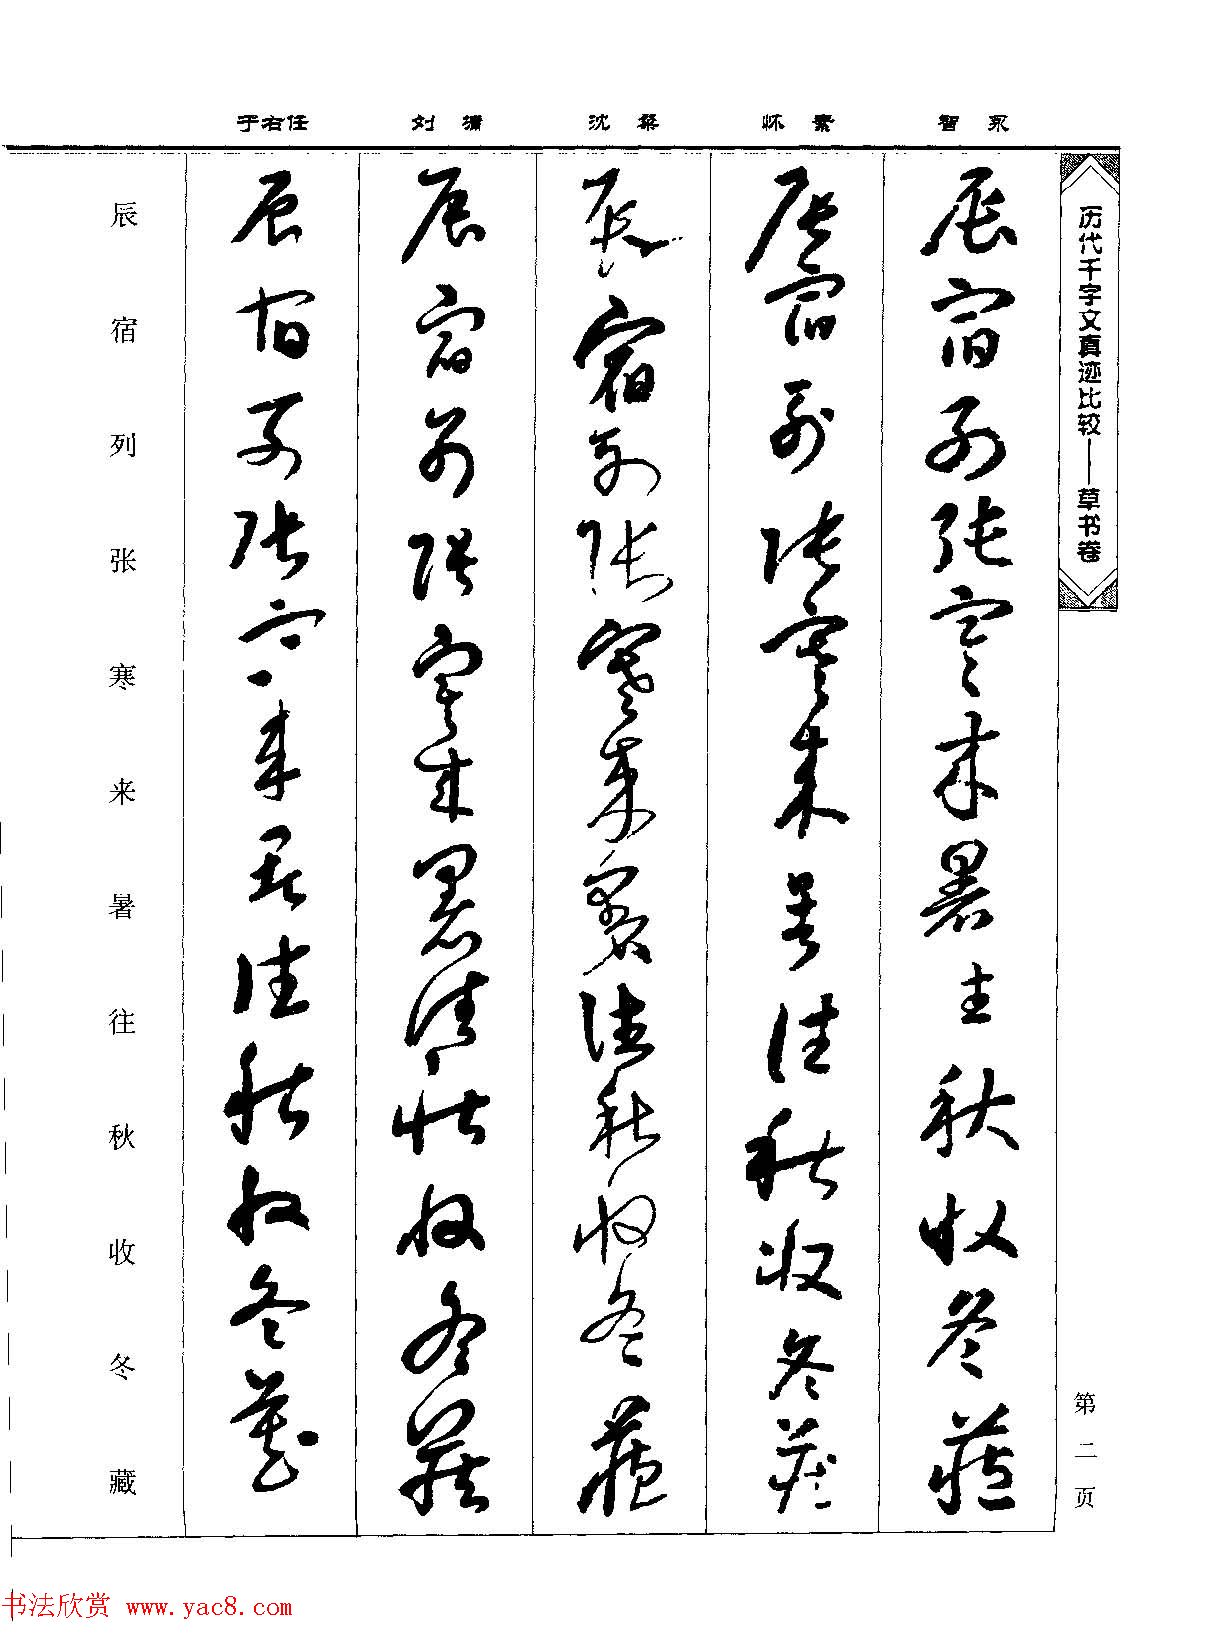 智永
怀素
沈粲
刘灞
于右任
历代千字文真迹比较——草书卷
第二页
辰宿列张寒来暑往秋收冬藏
辰宿列张寒来暑往秋收冬藏
辰宿列张寒来暑往秋收冬藏
辰宿列张寒来暑往秋收冬藏
辰宿列张寒来暑往秋收冬藏
辰宿列张寒来暑往秋收冬藏
书法欣赏 www.yac8.com